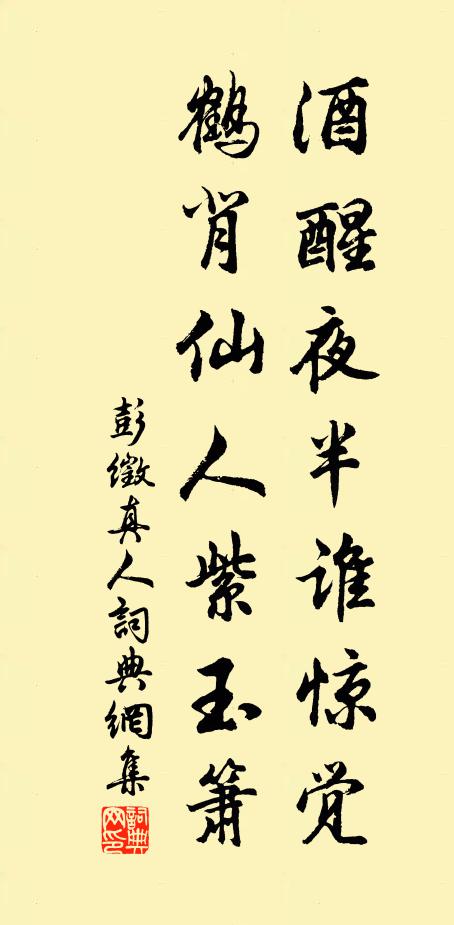 酒醒夜半谁惊觉
鹤背仙人紫玉箫
彭徵真人詞典網集
詞典网印